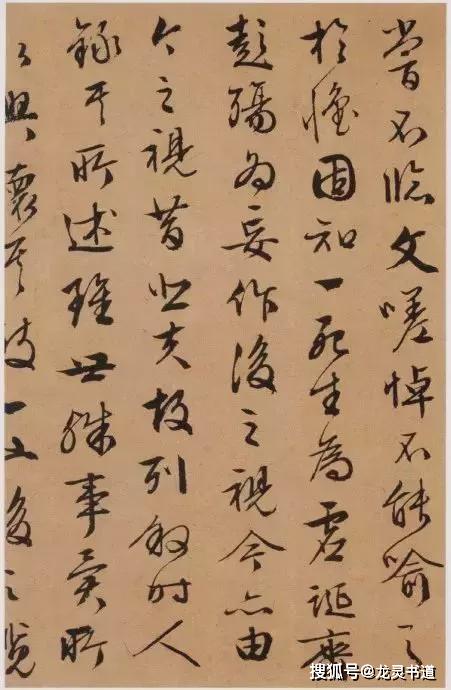 嘗不臨文嗟悼不能喻之
於懷固知一死生為虛誕齊
彭殤為妄作後之視今亦由
今之視昔悲夫故列敘時人
錄其所述雖世殊事異所
以興懷其致一也後之覽
搜狐号@龙灵书道